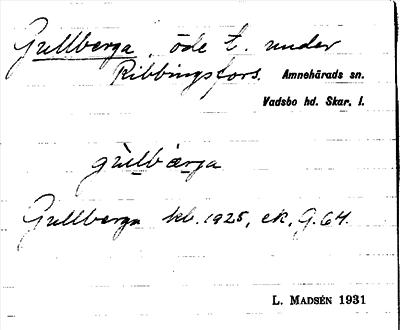 Gullberga, öde t. under
Ribbingsfors. Amnehärads sn.
Vadsbo hd. Skar. l.
gùlbæ̀rga
Gullberga kb. 1925, ek. G. 64.
L. MADSÉN 1931